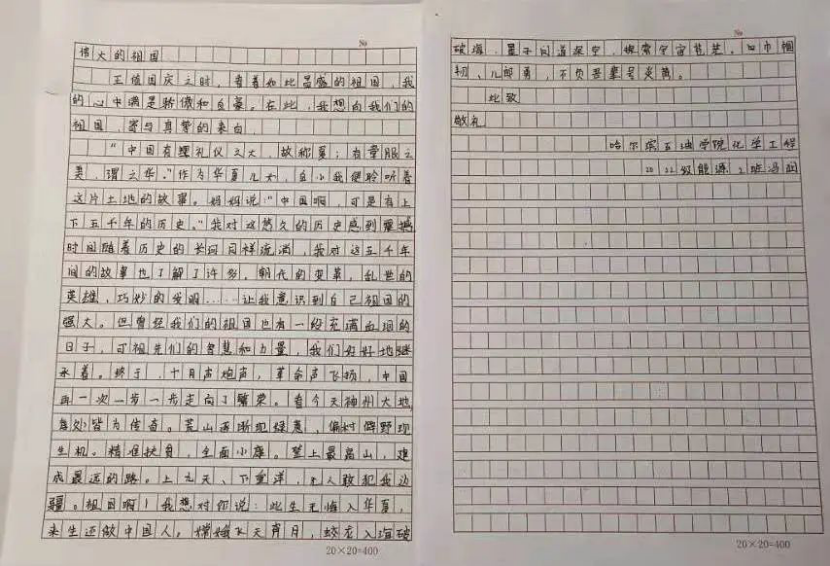 伟大的祖国
正值国庆之时，看着如此昌盛的祖国，我
的心中满是骄傲和自豪。在此，我想向我们的
祖国，寄与真挚的来由
“中国有礼仪之大，故称夏；有章服之
美，谓之华。”作为华夏儿女，自小我便聆听着
这片土地的故事。妈妈说：“中国啊，可是有上
下五千年的历史。”我对这悠久的历史感到震撼
时间随着历史的长河同样流淌，我对这五千年
间的故事也了解了许多。朝代的变革，乱世的
英雄，巧妙的发明……让我意识到自己祖国的
强大。但曾经我们的祖国也有一段充满血泪的
日子，可祖先们的智慧和力量，我们好好地继
承着。终于，十月声炮声，革命声飞扬，中国
再一次一步一步走向了繁荣。看今天神州大地，
每处皆为传奇。荒山逐渐现绿意，偏村僻野现
生机。精准扶贫，全面小康。登上最高山，建
成最远的路。上九天、下重洋，无人敢犯我边
疆。祖国啊！我想对你说：此生无悔入华夏，
来生还做中国人。嫦娥飞天奔月，蛟龙入海破
破浪，墨子问道深空，探索宇宙苍茫。巾帼
初、儿郎勇，不负吾辈号炎黄。
此致
敬礼
No
哈尔滨石油学院化学工程
20 22级能源2班
20×20=400
No
20×20=400